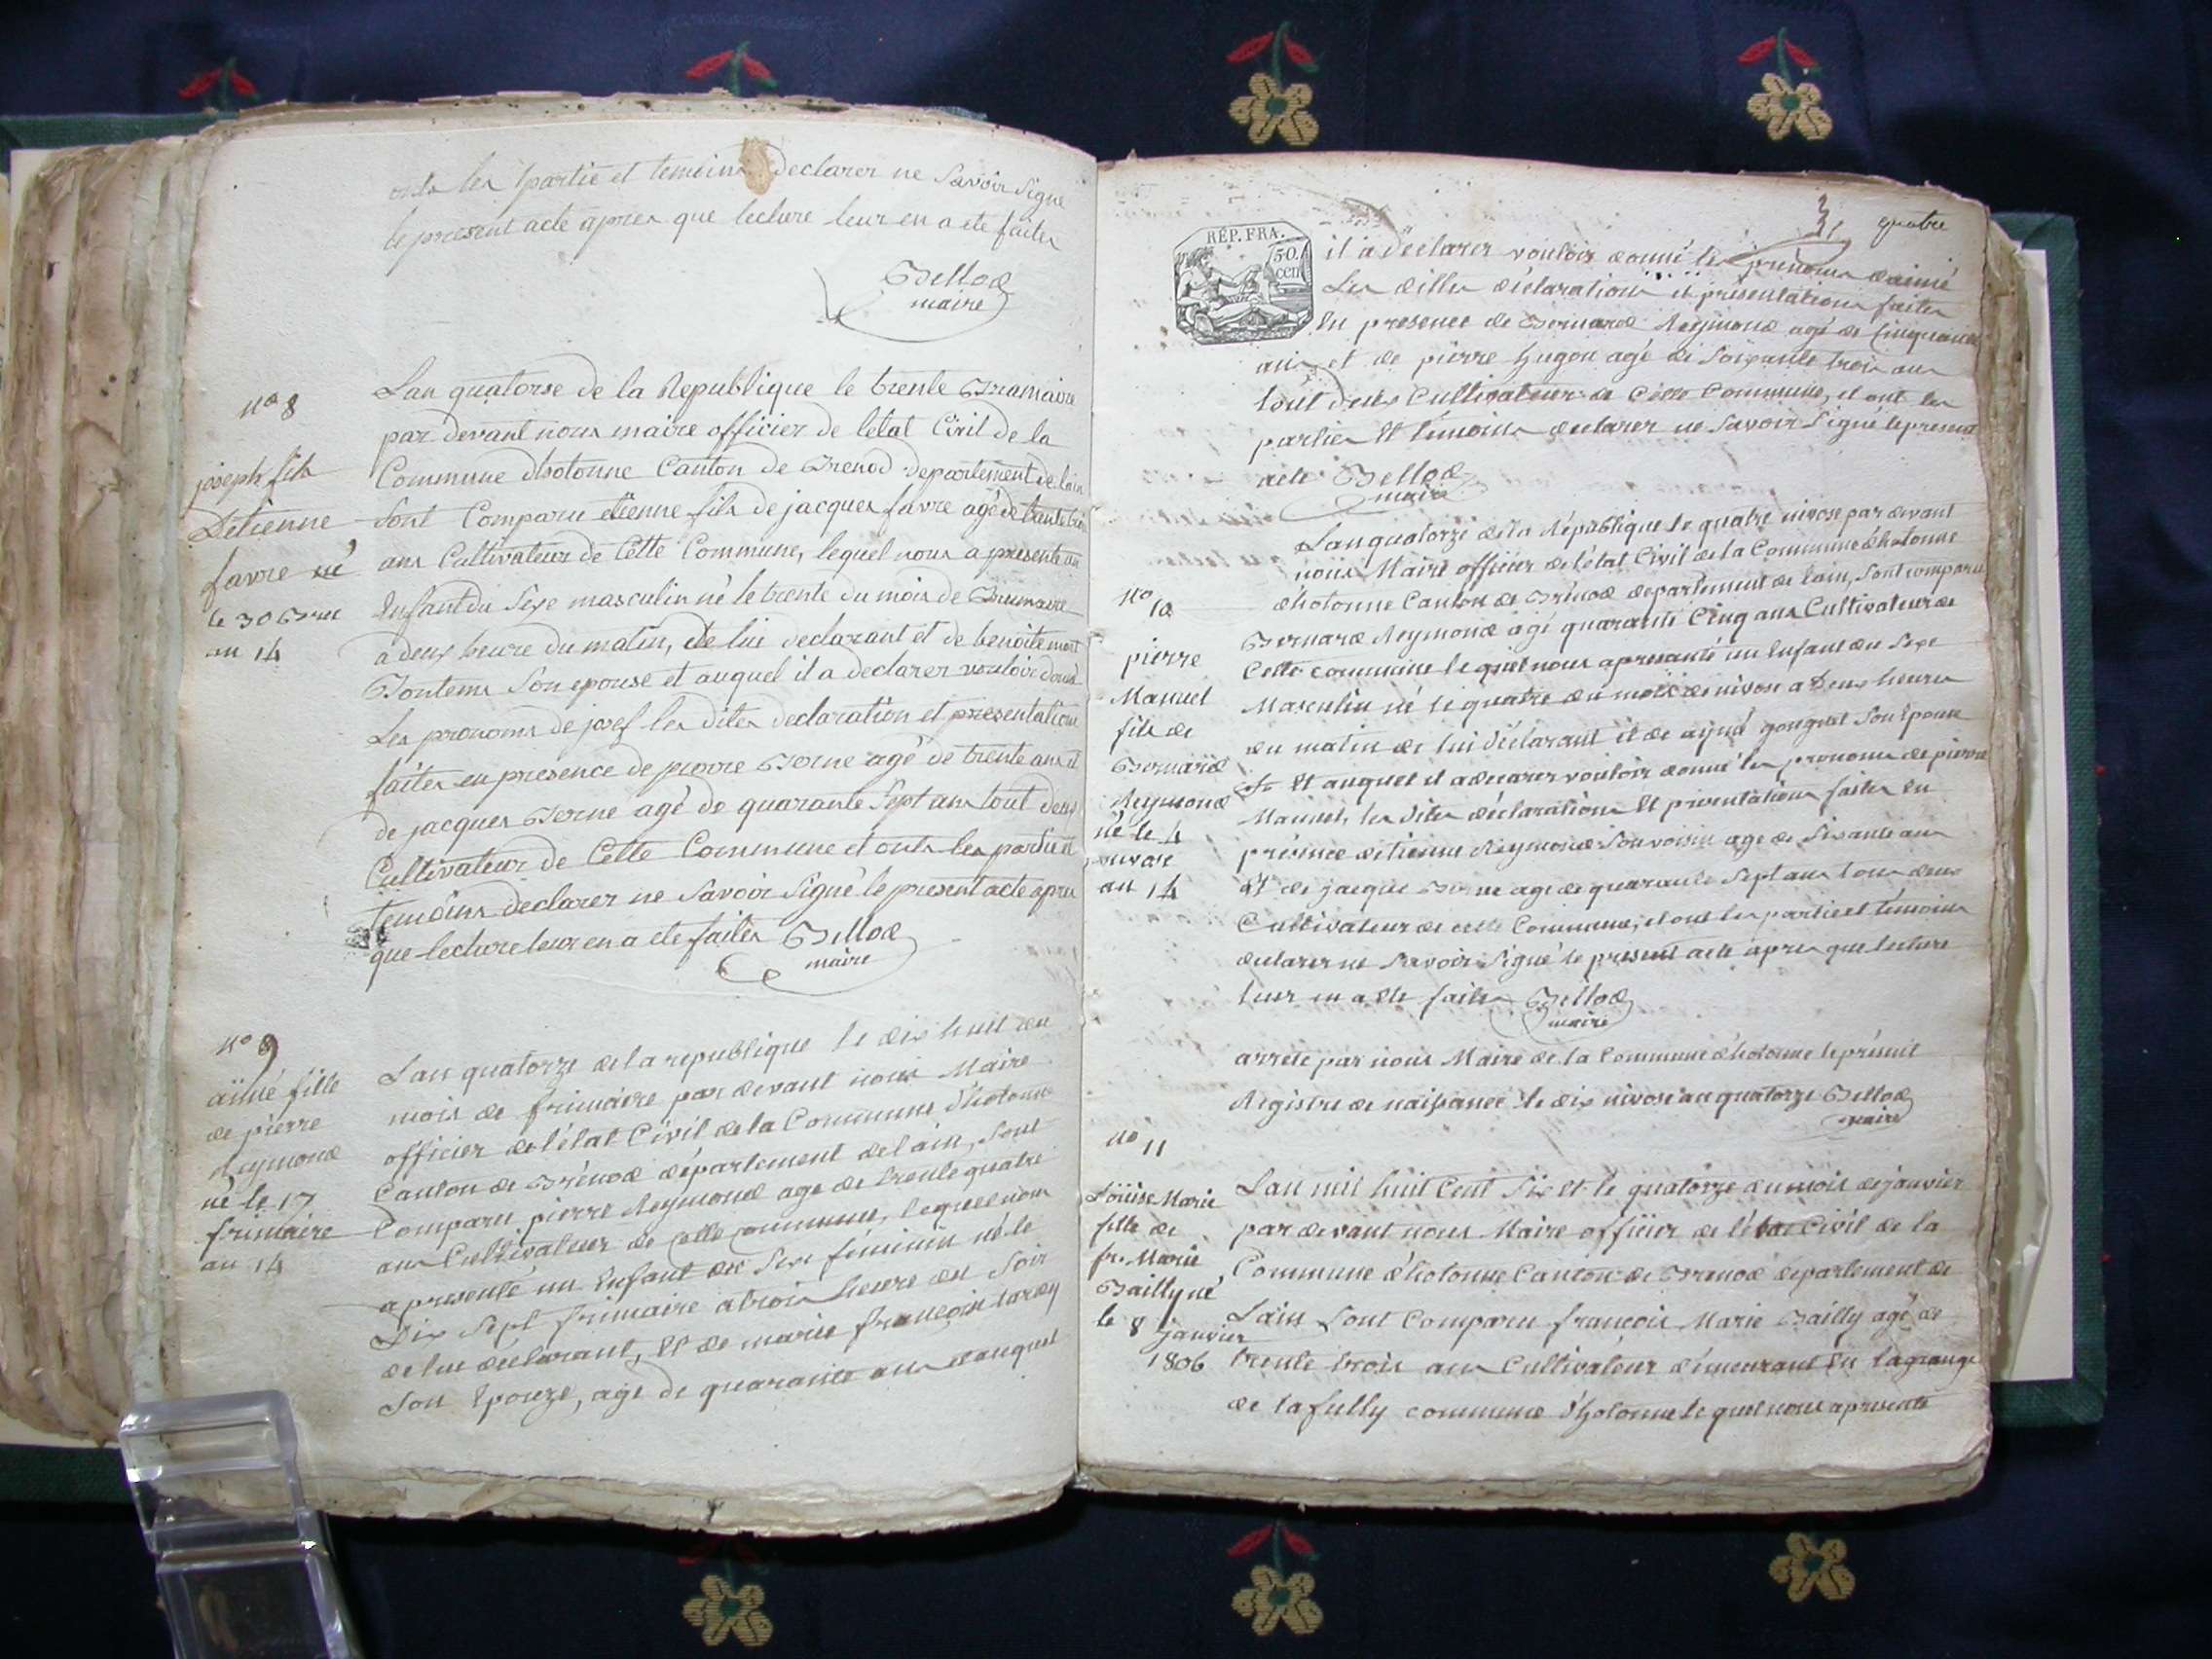 onts les partie et temoins declarer ne Savoir Signe
le present acte apres que lecture leur en a ete faites
Bellod
maire
n° 8
joseph fils
Detienne
favre né
le 30 Bre
an 14
Lan quatorse de la Republique le trente Bramaire
par devant nous maire officier de létat Civil de la
Commune dhotonne Canton de Brenod departement de lain
Sont Comparu etienne fils de jacques favre agé de trente trois
ans Cultivateur de Cette Commune, lequel nous a presenté un
Enfant du Sexe masculin né le trente du mois de Brumaire
a deux heure du matin, de lui declarant et de benoite
Bontems Son epouse et auquel il a declarer vouloir donné
Les pronoms de josef les dites declaration et presentation
faites en presence de pierre Borne agé de trente ans et
de jacques Borne agé de quarante Sept ans tout deux
Cultivateur de Cette Commune et onts les partie et
temoins declarer ne Savoir Signé le present acte apres
que lecture leur en a ete faites Bellod
maire
n° 9
aimé fille
de pierre
Reymond
né le 17
frimaire
an 14
Lan quatorze de la republique le dix huit du
mois de frimaire par devant nous Maire
officier de létat Civil de la Commune dhotonne
Canton de Brénod département de lain, Sont
Comparu pierre Reymond age de trente quatre
ans Cultivateur de cette commune, lequel nous
a presenté un Enfant du Sexe féminin né le
Dix Sept frimaire a trois heure du Soir
de lui déclarant, Et de marie françoise tardy
Son Epouze, agé de quarante ans et auquel
quatre
RÉP. FRA.
50.
cen
il a declarer vouloir donné les prenoms daimé
Les dittes déclarations et présentations faites
En presence de Bernard Reymond agé de Cinquante
ans et de pierre hugon agé de Soixante trois ans
tout deux Cultivateur de Cette Commune, et ont les
parties Et témoins declarer ne Savoir Signé le present
acte Bellod
maire
N°
10
pierre
Manuel
fils de
Bernard
Reymond
né le 4
nivose
an 14
Lan quatorze de la République le quatre nivose par devant
nous Maire officier de létat Civil de la Commune dhotonne
dhotonne Canton de Brénod departement de Lain, Sont comparu
Bernard Reymond agé quarante Cinq ans Cultivateur de
Cette commune le quel nous a presanté un Enfant du Sexe
Masculin né le quatre du mois de nivose a Deux heures
du matin de lui déclarant et de aimé gouguet Son Epouse
Et auquel il a declarer vouloir donné les pronoms de pierre
Manuel, les dites déclarations Et presentations faites En
présence detienne Reymond Son voisin agé de Sixante ans
Et de jacque Borne agé de quarante Sept ans tous deux
Cultivateur de cette Commune, et ont les partie et témoins
declarer ne Savoir Signé le present acte apres que lecture
leur en a Eté faites Bellod
maire
arrete par nous Maire de la Commune dhotonne le présent
Registre de naissance le dix nivose an quatorze Bellod
maire
n° 11
Loüise Marie
fille de
fr. Marie
Bailly né
le 8
janvier
1806
Lan mil huit Cent Six Et le quatorze du mois de janvier
par devant nous Maire officier de létat Civil de la
Commune dhotonne Canton de Brenod departement de
Lain Sont Comparu francois Marie Bailly agé de
trente trois ans Cultivateur démeurant En lagrange
de lafully commune dhotonne le quel nous a presenté